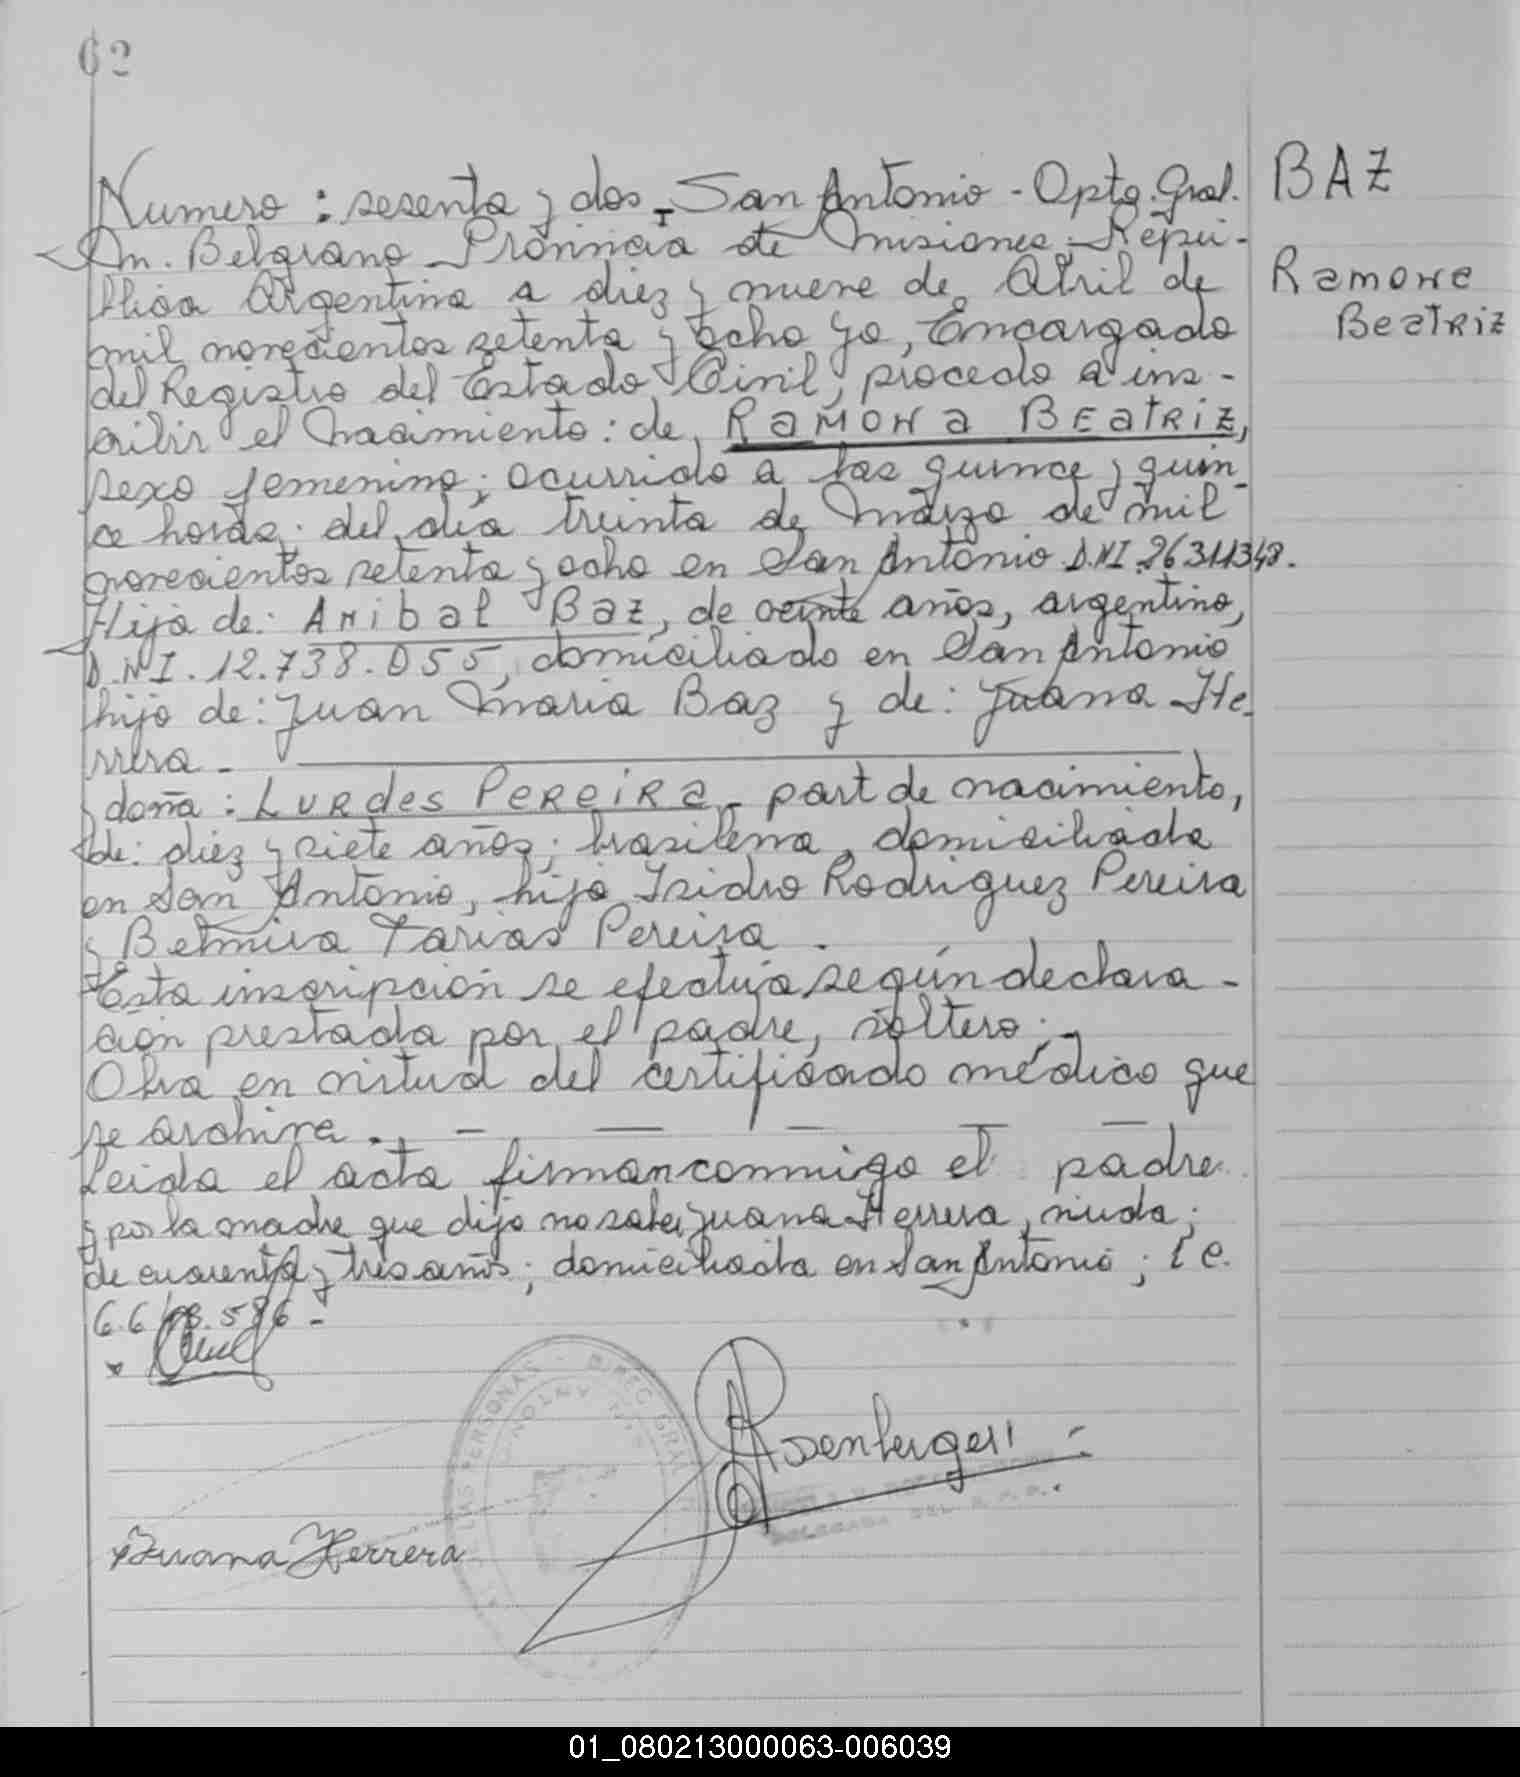 62
Numero: sesenta y dos - San Antonio - Dpto. Gral.
Mn. Belgrano Provincia de Misiones; Repú-
blica Argentina a diez y nueve de Abril de
mil novecientos setenta y ocho Yo, Encargado
del Registro del Estado Civil, procedo a ins-
cribir el nacimiento: de RAMONA BEATRIZ,
sexo femenino; ocurrido a las quince y quin-
ce horas; del día treinta de Marzo de mil
novecientos setenta y ocho en San Antonio D.N.I. 26311348.
Hija de: Anibal Baz, de veinte años, argentino,
D.N.I. 12.738.055, domiciliado en San Antonio
hijo de: Juan Maria Baz y de: Juana He-
rrera -
y doña: Lurdes Pereira - part de nacimiento,
de: diez y siete años; brasilera, domiciliada
en San Antonio, hija Isidro Rodriguez Pereira
y Belmira Farias Pereira.
Esta inscripción se efectúa según declara-
ción prestada por el padre, soltero;
Obra en virtud del certificado médico que
se archiva.
Leida el acta firman conmigo el padre
y por la madre que dijo no saber Juana Herrera, viuda;
de cuarenta y tres años; domiciliada en San Antonio; L C.
BAZ
Ramona
Beatriz
Juana Herrera
01_080213000063-006039